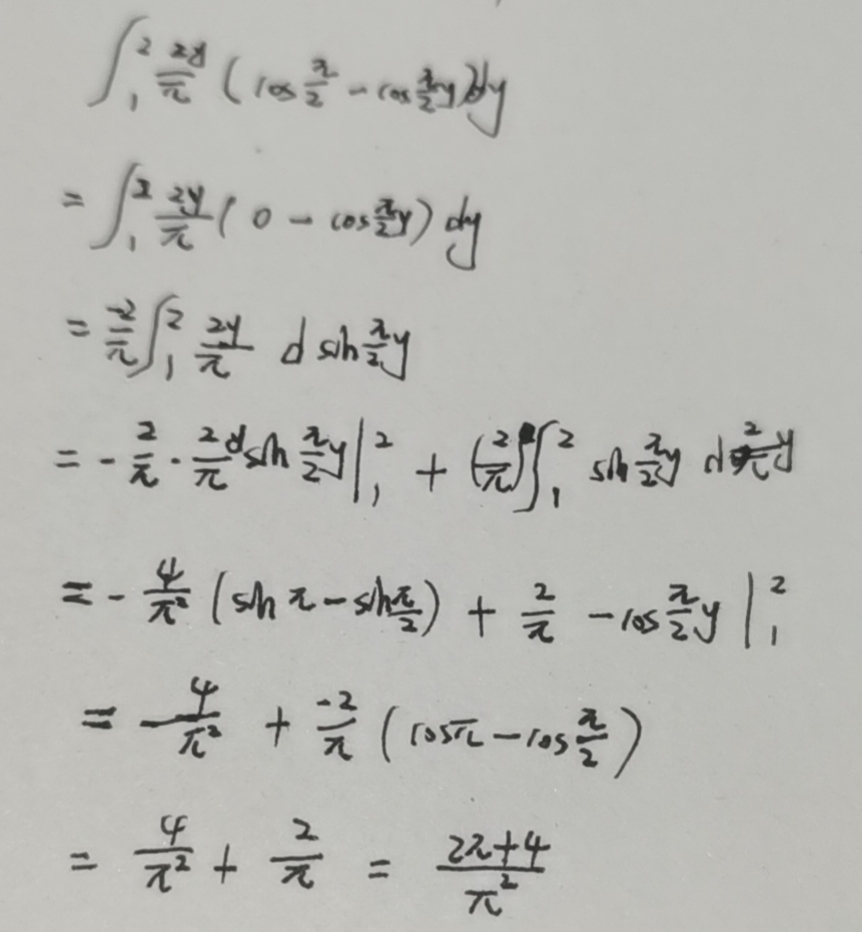 ∫₁² 2y/π (cos π/2 − cos π/2 y) dy
= ∫₁² 2y/π (0 − cos π/2 y) dy
= −2/π ∫₁² 2y/π d sin π/2 y
= − 2/π · 2/π sin π/2 y |₁² + (2/π) ∫₁² sin π/2 y d 2/π y
= − 4/π² (sin π − sin π/2) + 2/π − cos π/2 y |₁²
= − 4/π² + −2/π (cos π − cos π/2)
= 4/π² + 2/π = (2π+4)/π²